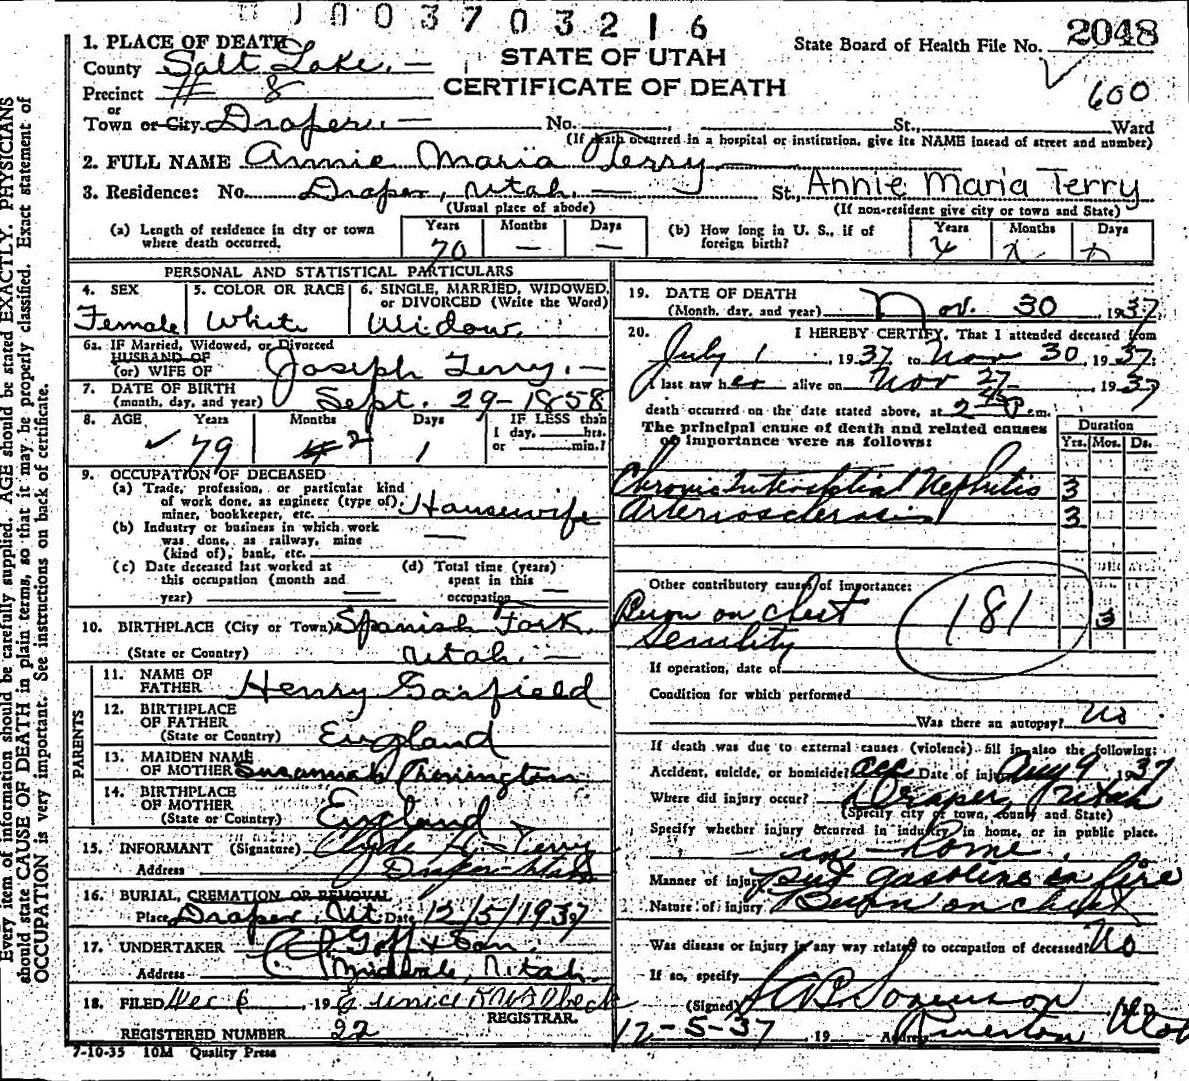 1003703216
2048
STATE OF UTAH
CERTIFICATE OF DEATH
State Board of Health File No.
600
1. PLACE OF DEATH
County Salt Lake. —
Precinct # 8
or
Town or City Draper. — No. St., Ward
(If death occurred in a hospital or institution, give its NAME instead of street and number)
2. FULL NAME Annie Maria Terry
3. Residence: No. Draper, Utah. — St., Annie Maria Terry
(Usual place of abode) (If non-resident give city or town and State)
(a) Length of residence in city or town where death occurred. Years 70 Months — Days —
(b) How long in U. S., if of foreign birth? Years Months Days
PERSONAL AND STATISTICAL PARTICULARS
4. SEX Female
5. COLOR OR RACE White
6. SINGLE, MARRIED, WIDOWED, or DIVORCED (Write the Word) Widow.
6a. IF Married, Widowed, or Divorced
HUSBAND OF
(or) WIFE OF Joseph Terry. —
7. DATE OF BIRTH
(month, day, and year) Sept. 29-1858
8. AGE Years 79 Months 2 Days 1 IF LESS than 1 day, hrs. or min.?
9. OCCUPATION OF DECEASED
(a) Trade, profession, or particular kind
of work done, as engineer (type of)
miner, bookkeeper, etc. Housewife
(b) Industry or business in which work
was done, as railway, mine
(kind of), bank, etc. —
(c) Date deceased last worked at
this occupation (month and
year) —
(d) Total time (years)
spent in this
occupation —
10. BIRTHPLACE (City or Town) Spanish Fork,
(State or Country) Utah. —
PARENTS
11. NAME OF
FATHER Henry Gasfield
12. BIRTHPLACE
OF FATHER
(State or Country) England
13. MAIDEN NAME
OF MOTHER Suzannah
14. BIRTHPLACE
OF MOTHER
(State or Country) England
15. INFORMANT (Signature) Clyde H. Terry
Address Draper Utah
16. BURIAL, CREMATION OR REMOVAL
Place Draper, Ut. Date 12/5/1937
17. UNDERTAKER Goff & Son,
Address Midvale, Utah.
18. FILED Dec 6, 19 Eunice
REGISTRAR.
REGISTERED NUMBER 22
7-10-35 10M Quality Press
19. DATE OF DEATH
(Month, day, and year) Nov. 30 1937
20. I HEREBY CERTIFY, That I attended deceased from
July 1, 1937 to Nov 30, 1937.
I last saw her alive on Nov 27- 1937
death occurred on the date stated above, at 2 45 P. m.
The principal cause of death and related causes
of importance were as follows:
Duration
Yrs. Mos. Ds.
Chronic Interstitial Nephritis 3
Arteriosclerosis 3
Other contributory causes of importance:
Burn on chest 3
Senility
181
If operation, date of
Condition for which performed
Was there an autopsy? No
If death was due to external causes (violence) fill in also the following:
Accident, suicide, or homicide? acc Date of injury Aug 9 1937
Where did injury occur? Draper, Utah
(Specify city or town, county and State)
Specify whether injury occurred in industry, in home, or in public place.
in Home.
Manner of injury put gasoline in fire
Nature of injury Burn on chest
Was disease or injury in any way related to occupation of deceased? No
If so, specify
(Signed) Sorenson
12-5-37 19 Address Riverton Utah
Every item of information should be carefully supplied. AGE should be stated EXACTLY. PHYSICIANS
should state CAUSE OF DEATH in plain terms, so that it may be properly classified. Exact statement of
OCCUPATION is very important. See instructions on back of certificate.